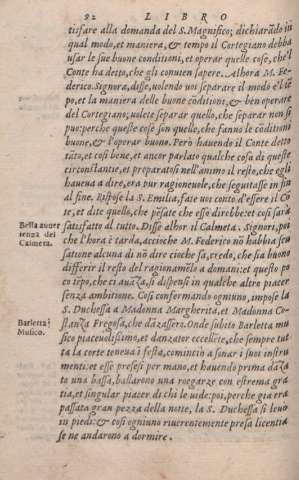 92 LIBRO
tisfare alla domanda del S. Magnifico; dichiarādo in
qual modo, et maniera, & tempo il Cortegiano debba
usar le sue buone conditioni, et operar quelle cose, che'l
Conte ha detto, che gli conuien sapere. Alhora M. Fe-
derico. Signora, disse, uolendo uoi separare il modo e'l tē
po, et la maniera delle buone cōditioni, & ben operare
del Cortegiano; uolete separar quello, che separar non si
puo: perche queste cose son quelle, che fanno le cōditioni
buone, & l'operar buono. Però hauendo il Conte detto
tāto, et cosi bene, et ancor parlato qualche cosa di queste
circonstantie, et preparatosi nell'animo il resto, che egli
haueua a dire, era pur ragioneuole, che seguitasse in fin
al fine. Rispose la S. Emilia, fate uoi conto d'essere il Cō
te, et dite quello, che pēsate che esse direbbe: et cosi sarà
Bella auuer
tenza del
Calmeta.
satisfatto al tutto. Disse alhor il Calmeta. Signori, poi
che l'hora è tarda, accioche M. Federico nō habbia scu-
satione alcuna di nō dire cioche sa, credo, che sia buono
differir il resto del ragionamēto a domani: et questo po
co tipo, che ci auāza, si dispensi in qualche altro piacer
senza ambitione. Cosi confermando ogniuno, impose la
S. Duchessa a Madonna Margherita, et Madonna Co-
Barletta
Musico.
stanza Fregosa, che dāzassero. Onde subito Barletta mu
sico piaceuolissimo, et danzator eccellete, che sempre tut
ta la corte teneua ī festa, comincio a sonar i suoi instru
menti: et esse presesi per mano, et hauendo prima dāza
to una bassa, ballarono una roegarze con estrema gra
tia, et singular piacer di chi le uide: poi, perche gia era
passata gran pezza della notte, la S. Duchessa si leuò
in piedi: & cosi ogniuno riuerentemente presa licentia
se ne andarono a dormire.